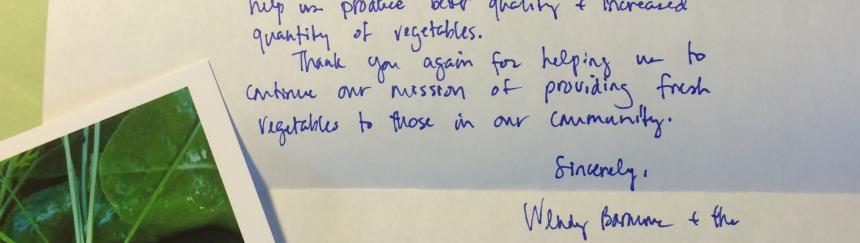 help us produce best quality + increased
quantity of vegetables.
Thank you again for helping us to
continue our mission of providing fresh
vegetables to those in our community.
Sincerely,
Wendy + the